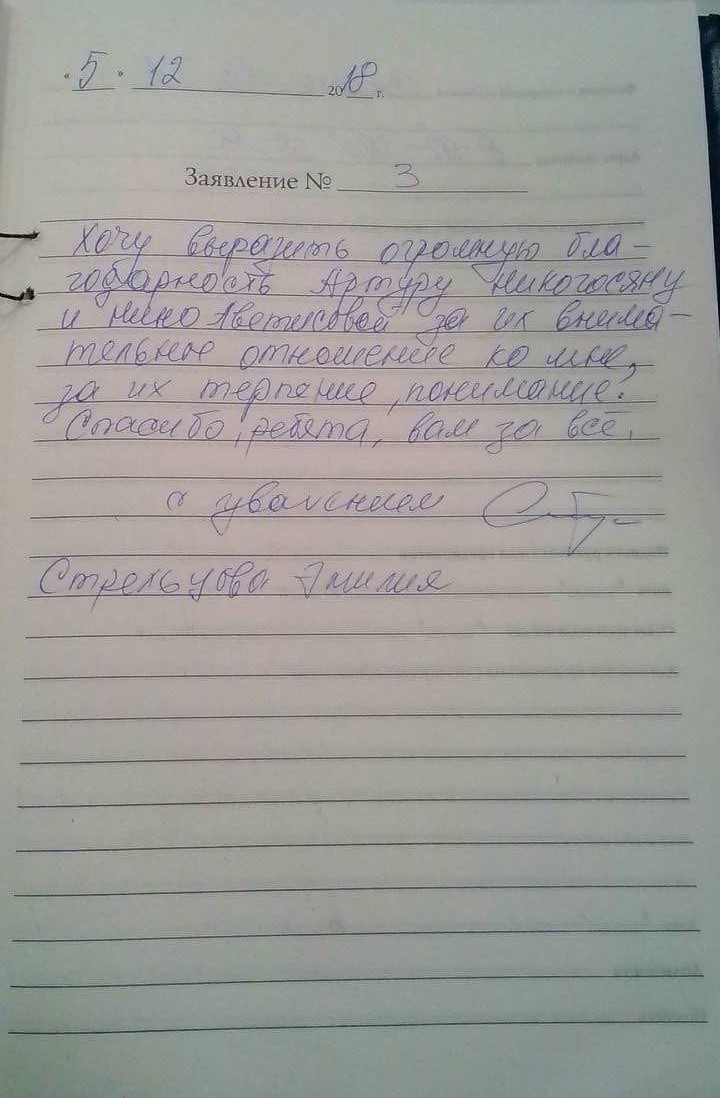 « 5 » 12 2018 г.
Заявление № 3
Хочу выразить огромную бла-
годарность Артуру Никогосяну
и Нино Аветисовой за их внима-
тельное отношение ко мне,
за их терпение, понимание.
Спасибо, ребята, вам за всё.
с уважением
Стрельцова Эмилия